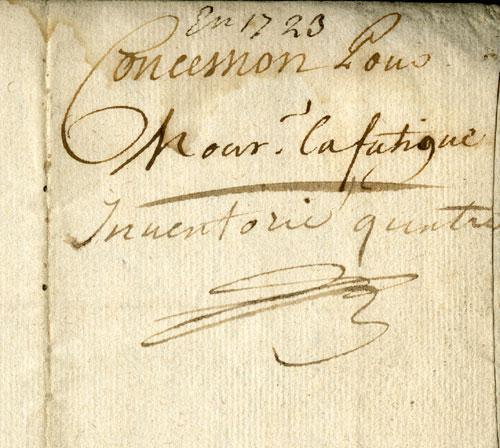 En 1723
Concession Pour
Nour.^t lafatigue
Inventorié quatre